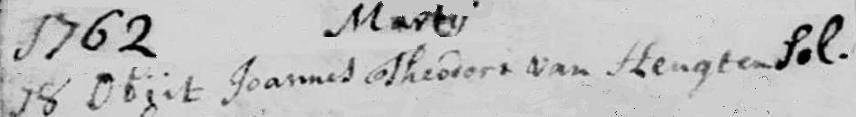 1762 Martij
18 Obijt Joannes Theodori van Hengten Sol.